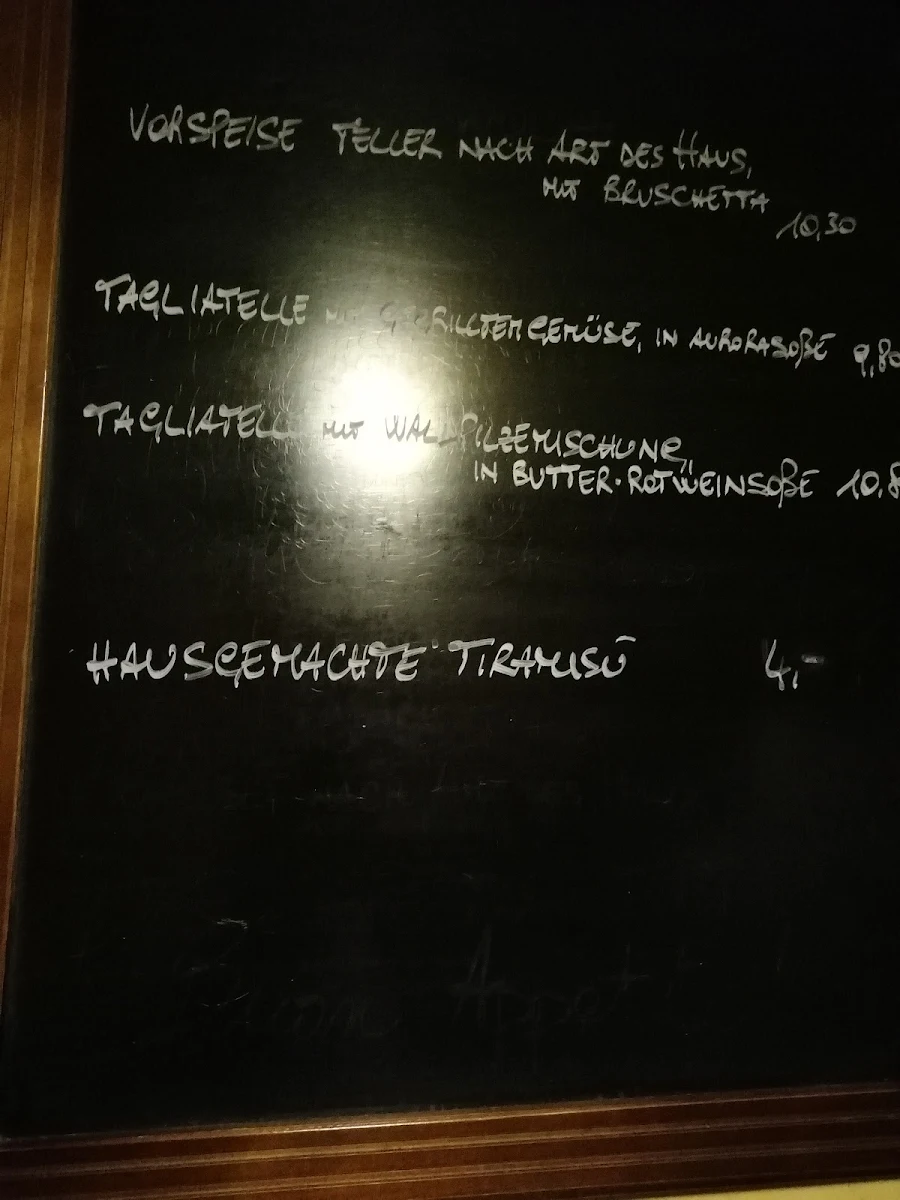 VORSPEISE TELLER NACH ART DES HAUS,
MIT BRUSCHETTA
10,30
TAGLIATELLE MIT GEGRILLTEM GEMÜSE, IN AURORASOßE 9,80
TAGLIATELLE MIT WALDPILZEMISCHUNG,
IN BUTTER-ROTWEINSOßE 10,8
HAUSGEMACHTE TIRAMISÙ 4,-
Buon Appetit